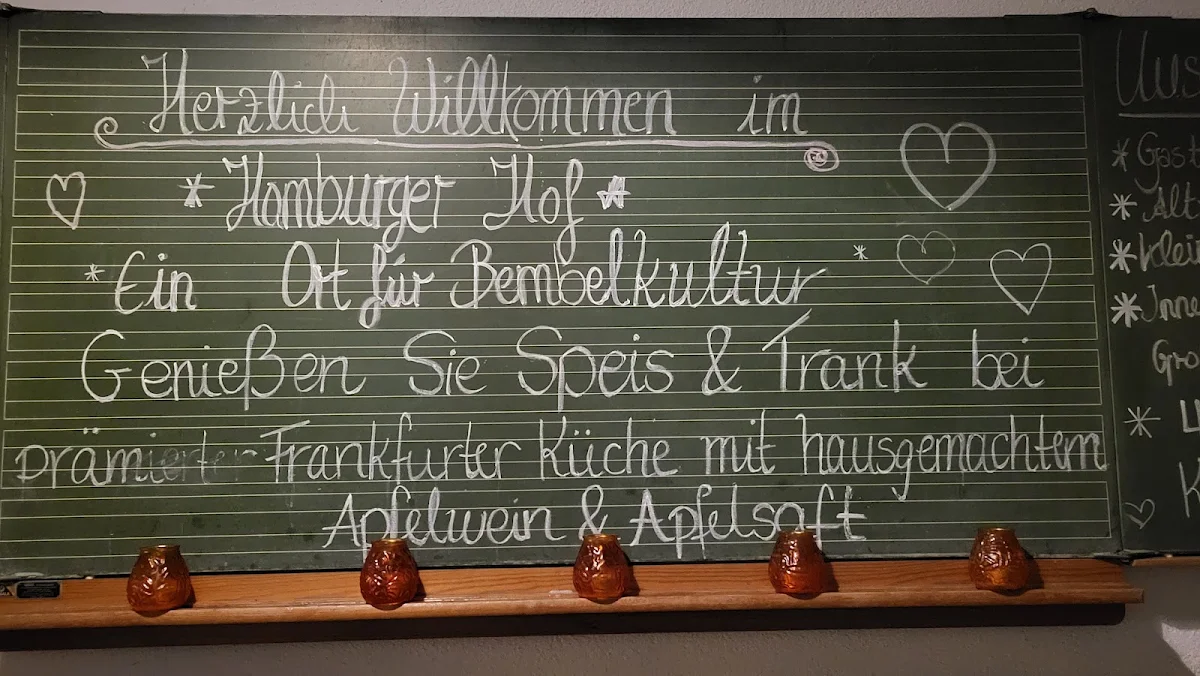 Herzlich Willkommen im
* Hamburger Hof *
* Ein Ort für Bembelkultur *
Genießen Sie Speis & Trank bei
prämierter Frankfurter Küche mit hausgemachtem
Apfelwein & Apfelsaft